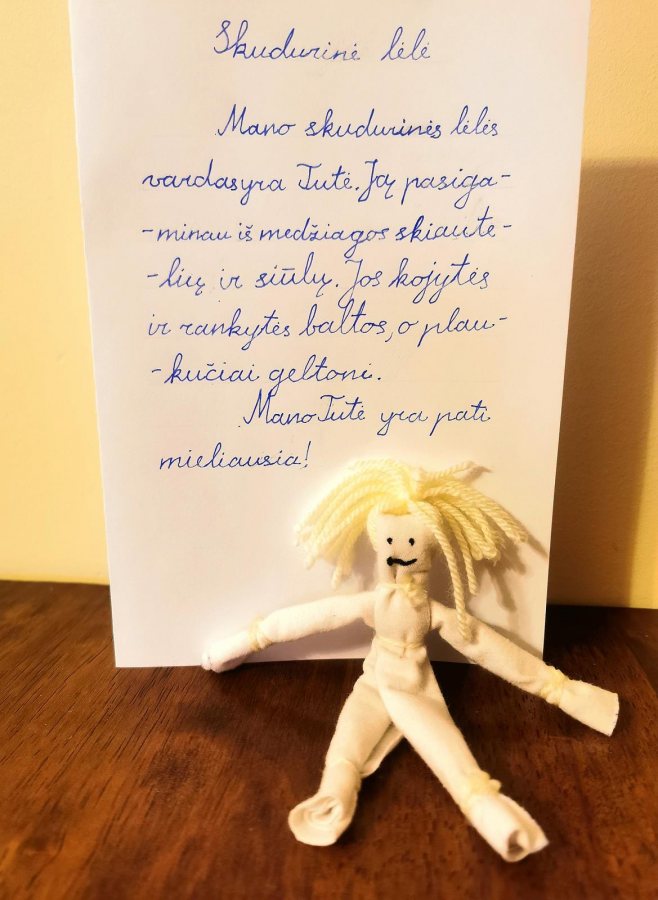 Skudurinė lėlė
Mano skudurinės lėlės
vardas yra Tutė. Ją pasiga-
-minau iš medžiagos skiaute-
-lių ir siūlų. Jos kojytės
ir rankytės baltos, o plau-
-kučiai geltoni.
Mano Tutė yra pati
mieliausia!